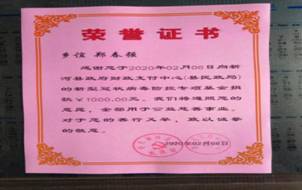 荣誉证书
乡谊 郑春强
感谢您于2020年02月06日向新
河县政府财政支付中心(县民政局)
的新型冠状病毒防控专项基金捐
款¥1000.00元。我们将遵照您的
意愿，全部用于公益慈善事业。
对于您的善行义举，致以诚挚
的敬意。
2020年02月06日